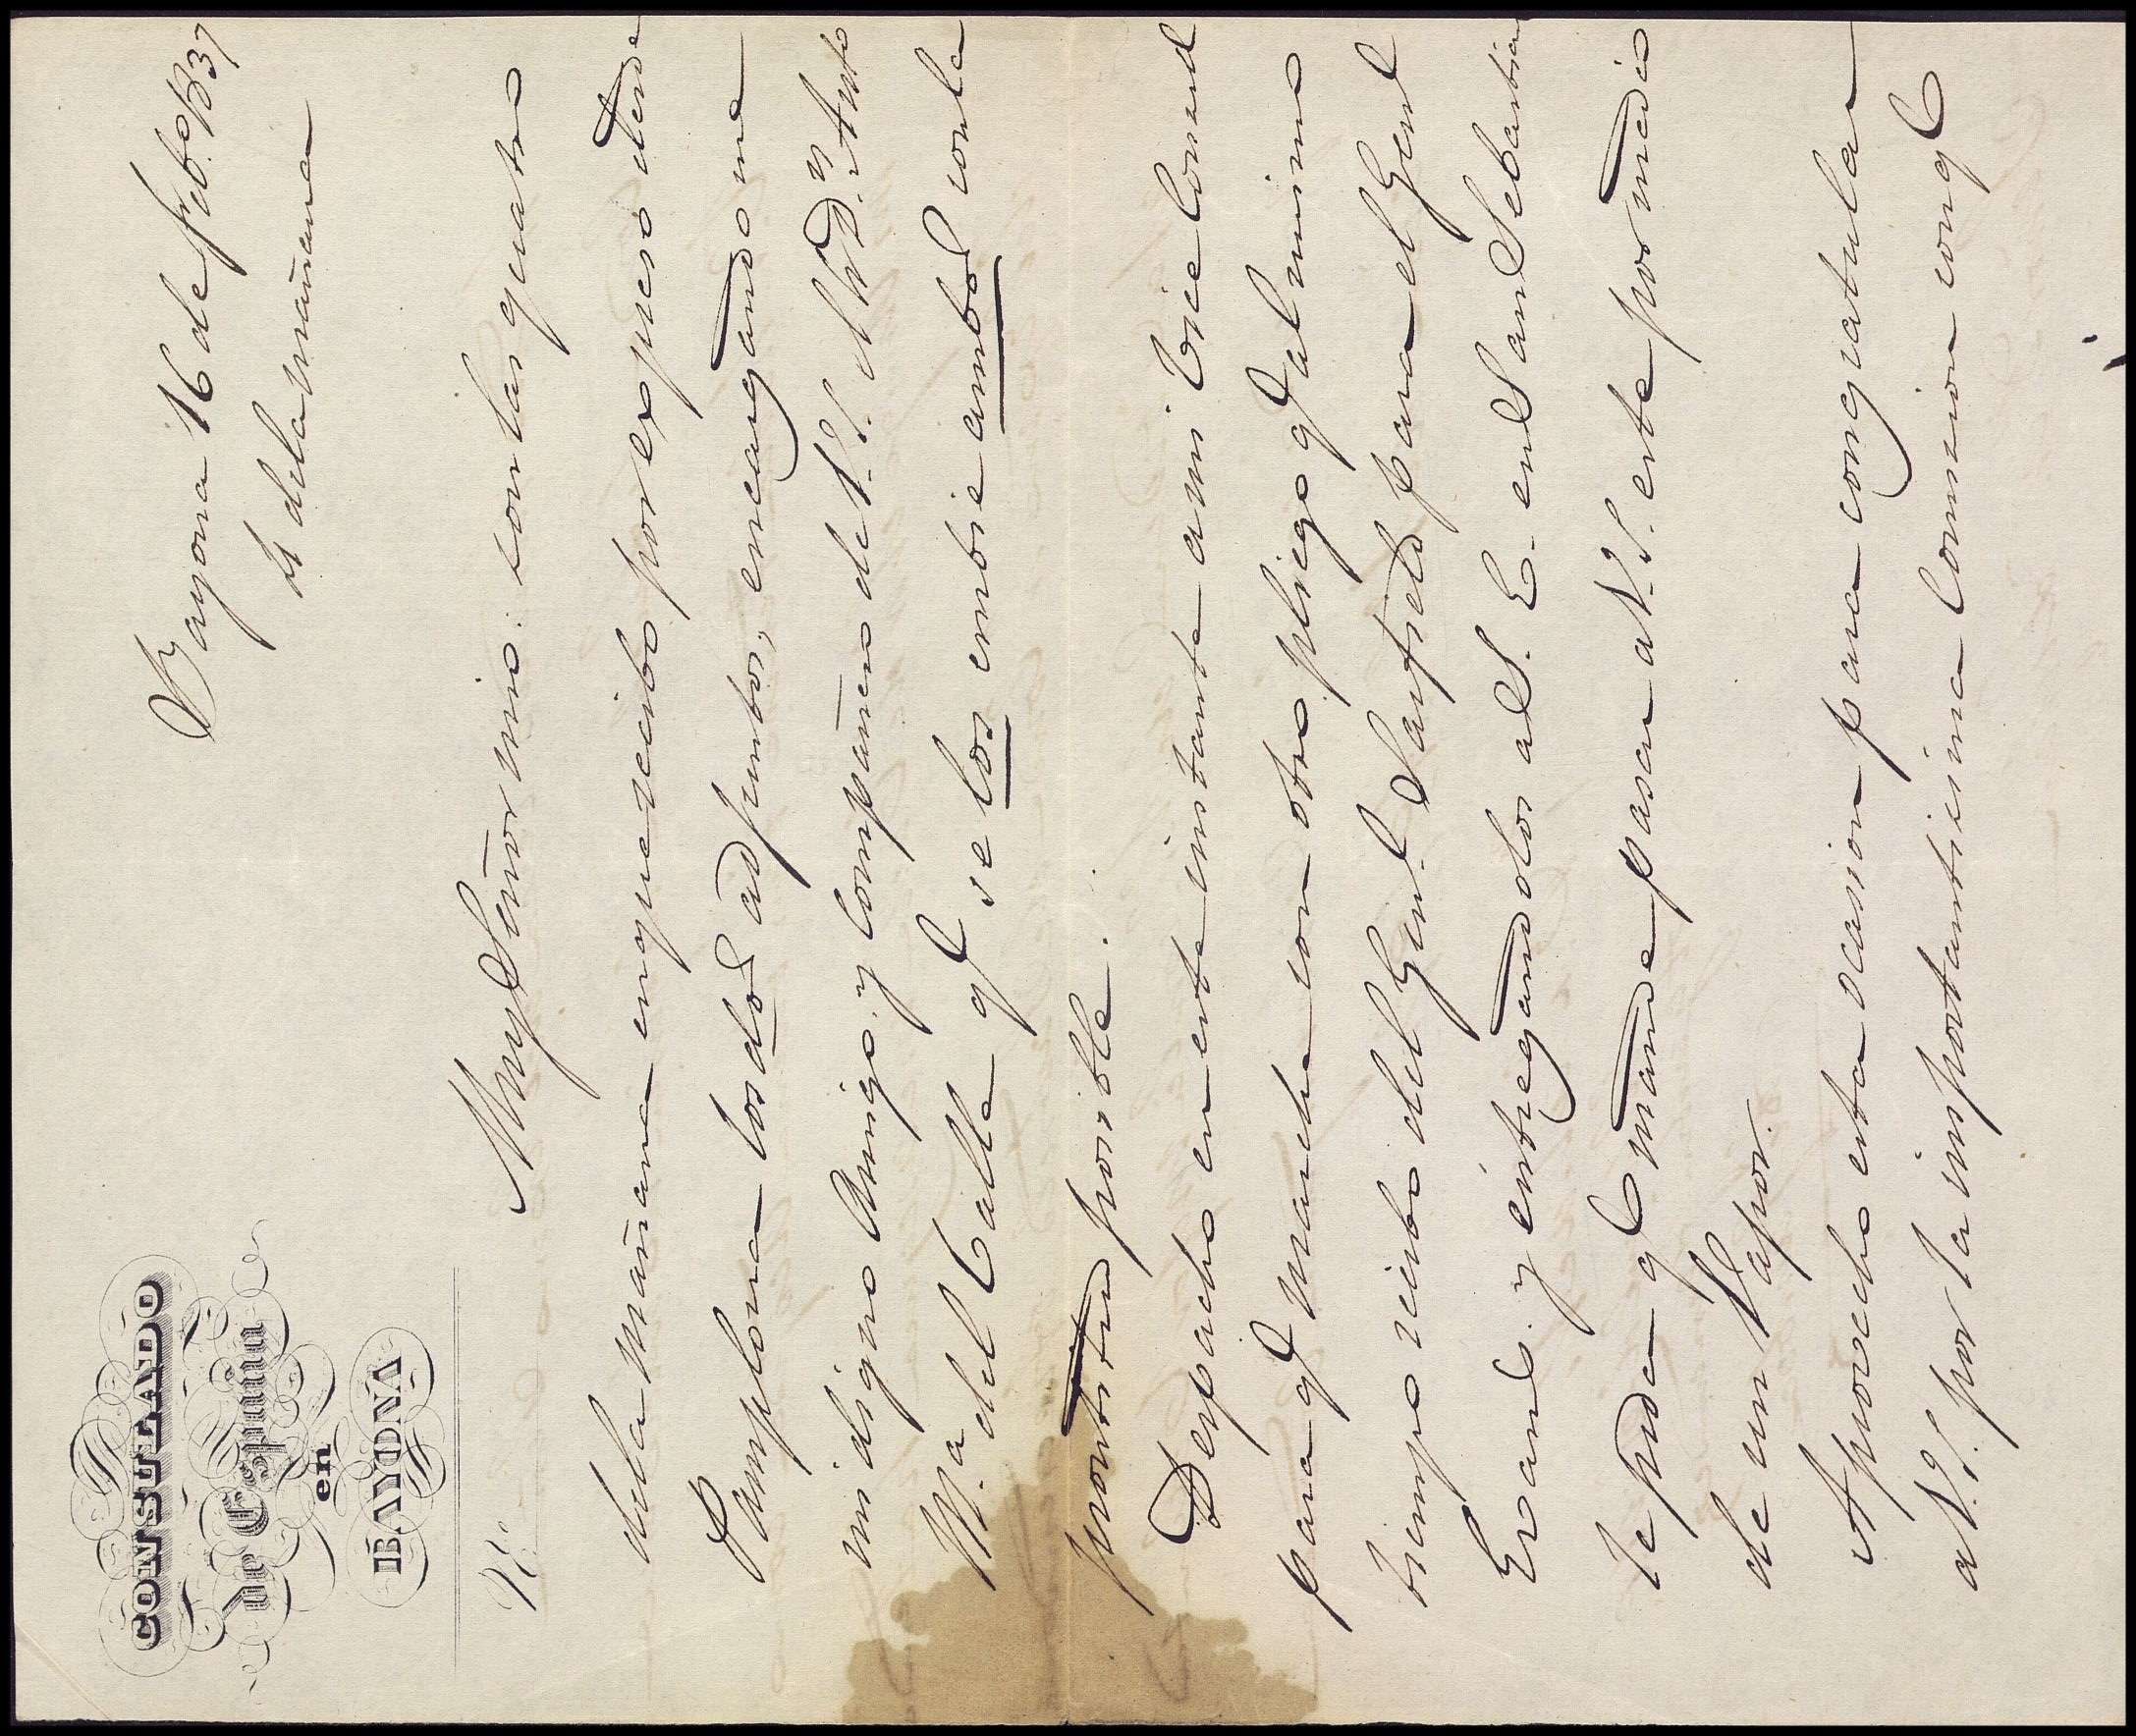 CONSULADO
De España
en
BAYONA
Nº
Bayona 16 de Febº 1837
de la mañana
Muy Señor mio: son las quatro
dela mañana en que recibo por expreso desde
Pamplona los dos adjuntos, encargando me
mi digno Amigo y Compañero de V.S. el Sr Dn. Anto
Ma. del Valle qe se los embie ambos con la
prontitud posible.
Despacho en este instante a mi Vice Consul
para qe marche con otro pliego qe al mismo
tiempo recibo del Genl. Sarsfield para el Genl
Evans. y entregandolos a S. E. en San Sebastian
le pida qe mande pasar a V.S. este por medio
de un Vapor.
Aprovecho esta ocasion para congratular
a V.S. por la importantisima Comision con qe